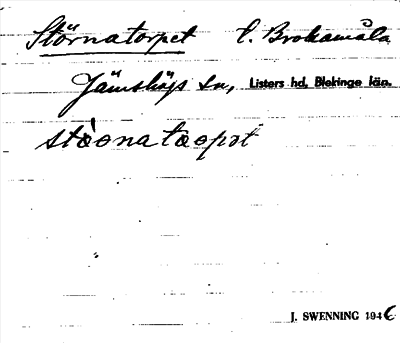 Störnatorpet l. Brokamåla
Jämshögs sn, Listers hd, Blekinge län.
stòᴏnatᴏᴏpət
J. SWENNING 1946